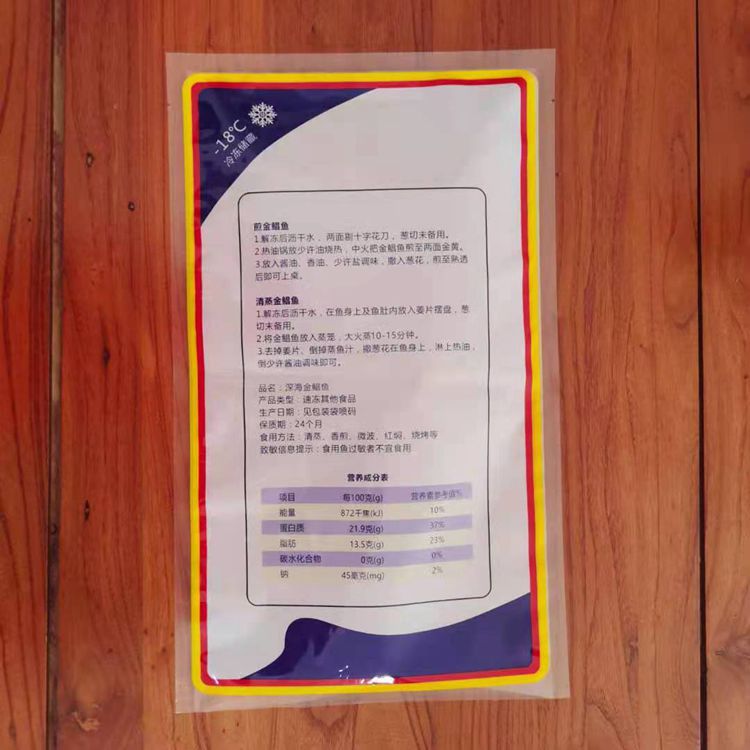 -18℃
冷冻储藏
煎金鲳鱼
1.解冻后沥干水，两面剔十字花刀，葱切末备用。
2.热油锅放少许油烧热，中火把金鲳鱼煎至两面金黄。
3.放入酱油、香油、少许盐调味，撒入葱花，煎至熟透
后即可上桌。
清蒸金鲳鱼
1.解冻后沥干水，在鱼身上及鱼肚内放入姜片摆盘，葱
切末备用。
2.将金鲳鱼放入蒸笼，大火蒸10-15分钟。
3.去掉姜片、倒掉蒸鱼汁，撒葱花在鱼身上，淋上热油，
倒少许酱油调味即可。
品名：深海金鲳鱼
产品类型：速冻其他食品
生产日期：见包装袋喷码
保质期：24个月
食用方法：清蒸、香煎、微波、红焖、烧烤等
致敏信息提示：食用鱼过敏者不宜食用
营养成分表
项目 每100克(g) 营养素参考值%
能量 872千焦(kJ) 10%
蛋白质 21.9克(g) 37%
脂肪 13.5克(g) 23%
碳水化合物 0克(g) 0%
钠 45毫克(mg) 2%